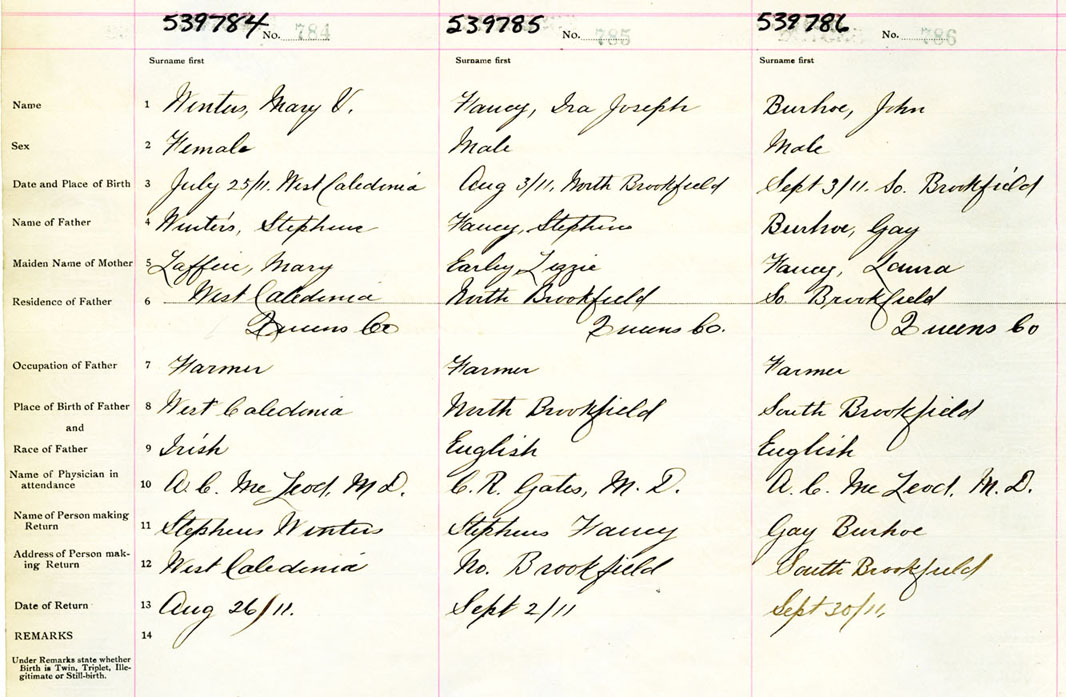 539784 No. 784 539785 No. 785 539786 No. 786
Surname first Surname first Surname first
Name 1 Winters, Mary V. Fancy, Ira Joseph Burhoe, John
Sex 2 Female Male Male
Date and Place of Birth 3 July 25/11. West Caledonia Aug 3/11, North Brookfield Sept 3/11 So. Brookfield
Name of Father 4 Winters, Stephen Fancy, Stephen Burhoe, Gay
Maiden Name of Mother 5 Laffin, Mary Earley, Lizzie Fancy, Laura
Residence of Father 6 West Caledonia North Brookfield So. Brookfield
Queens Co Queens Co. Queens Co
Occupation of Father 7 Farmer Farmer Farmer
Place of Birth of Father 8 West Caledonia North Brookfield South Brookfield
and
Race of Father 9 Irish English English
Name of Physician in
attendance 10 A. C. McLeod, M D. C. R. Gates, M. D. A. C. McLeod, M. D.
Name of Person making
Return 11 Stephens Winters Stephens Fancy Gay Burhoe
Address of Person mak-
ing Return 12 West Caledonia No. Brookfield South Brookfield
Date of Return 13 Aug 26/11. Sept 2/11 Sept 30/11,
REMARKS 14
Under Remarks state whether
Birth is Twin, Triplet, Ille-
gitimate or Still-birth.